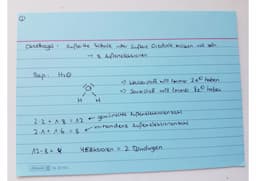 ①
Oktettregel: äußerste Schale oder äußere Orbitale müssen voll sein
→ 8 Außenelektronen
Bsp.: H₂O
→ Wasserstoff will immer 2e⁻ haben
→ Sauerstoff will immer 8e⁻ haben
O
H H
2·2 + 1·8 = 12 ← gewünschte Außenelektronenzahl
2·1 + 1·6 = 8 ← vorhandene Außenelektronenzahl
12-8 = 4 4 Elektronen = 2 Bindungen